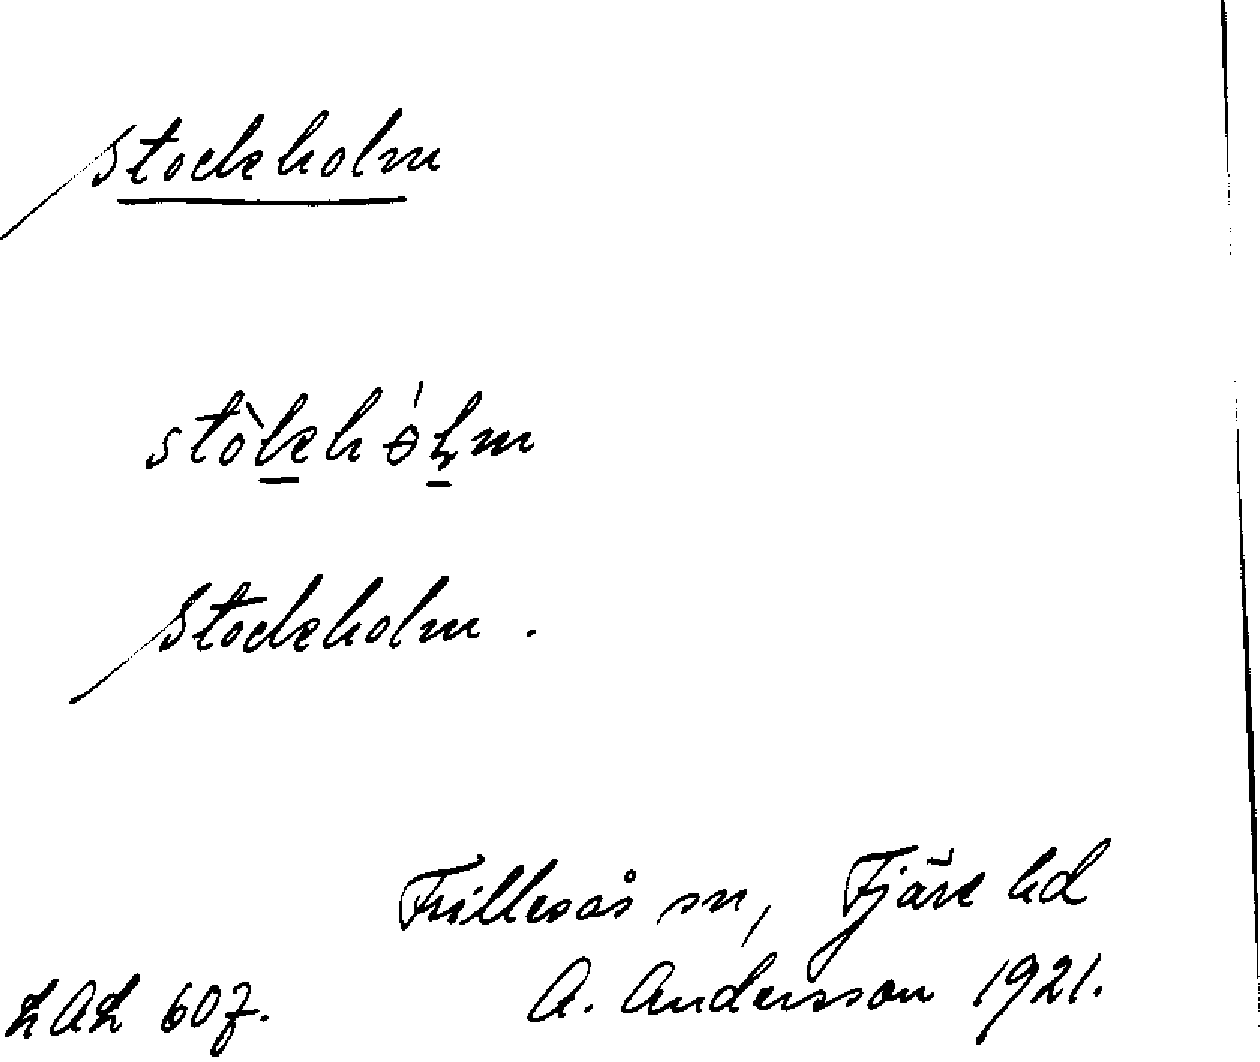 Stockholm
stòkhólm
Stockholm.
Frillesås sn, Fjäre hd
LAL 607. A. Andersson 1921.